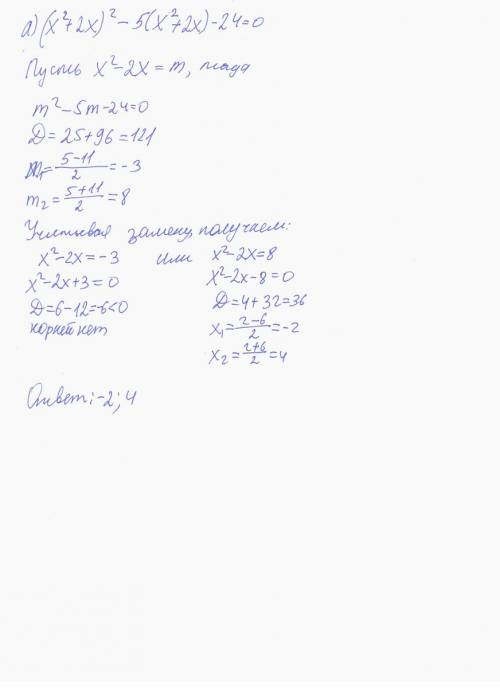 а) (x²+2x)² – 5(x²+2x) – 24=0
Пусть x²–2x = m, тогда
m²–5m–24=0
D = 25+96 = 121
m₁ = (5–11)/2 = –3
m₂ = (5+11)/2 = 8
Учитывая замену, получаем:
x²–2x = –3 или x²–2x=8
x²–2x+3=0 x²–2x–8=0
D=6–12=–6<0 D=4+32=36
корней нет x₁ = (2–6)/2 = –2
x₂ = (2+6)/2 = 4
Ответ: –2; 4